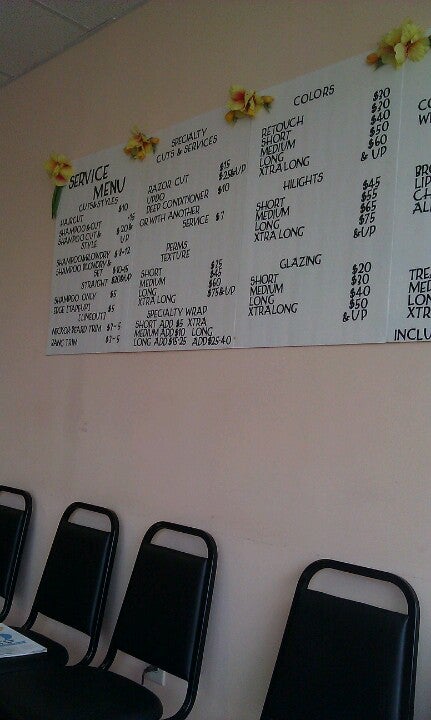 SERVICE
MENU
CUTS&STYLES
HAIRCUT $10
SHAMPOO&CUT
SHAMPOO,CUT &
STYLE UP
SET
STRAIGHT
SHAMPOO ONLY $5
$5
NECK OR BEARD TRIM $3-5
BANG TRIM
SPECIALTY
CUTS & SERVICES
RAZOR CUT $15
UPDO $25&UP
DEEP CONDITIONER $10
OR WITH ANOTHER
SERVICE $7
PERMS
TEXTURE
SHORT
MEDIUM $45
LONG $60
XTRA LONG $75&UP
SPECIALTY WRAP
SHORT ADD $5 XTRA
MEDIUM ADD $10 LONG
LONG ADD $15-25 ADD $25-40
COLORS
RETOUCH
SHORT $20
MEDIUM $40
LONG $50
XTRALONG $60
& UP
HILIGHTS
SHORT $45
MEDIUM $55
LONG $65
XTRALONG $75
&UP
GLAZING
SHORT $20
MEDIUM $30
LONG $40
XTRALONG $50
&UP
CO
BRO
LIP
CH
ALL
TREA
MED
LON
XTR
INCLU